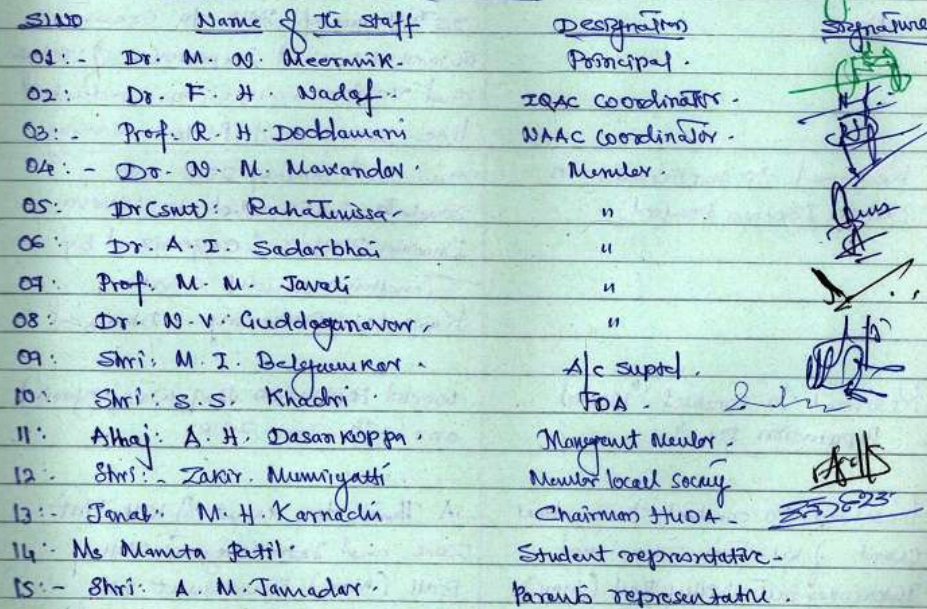 SLNO Name of the staff Designation Signature
01:- Dr. M. N. Meeranik. Principal.
02: Dr. F. H. Nadaf. IQAC coordinator.
03:- Prof. R. H. Doddamani NAAC coordinator.
04:- Dr. N. M. Maxandar. Member.
05: Dr (smt): RahaTunissa. "
06: Dr. A. I. Sadarbhai "
07: Prof. M. M. Javali "
08: Dr. N. V. Guddaganavar. "
09: Shri: M. I. Belgaumkar. A/c suptd.
10 Shri: S. S. Khadri FDA.
11: Alhaj: A. H. Dasankoppa. Member.
12: Shri:- Zakir. Mumrigatti Member local
13:- Janab. M. H. Karnachi Chairman HUDA-
14:- Ms Mamta Patil. Student representative-
15:- Shri: A. M. Jamadar. Parents representative.